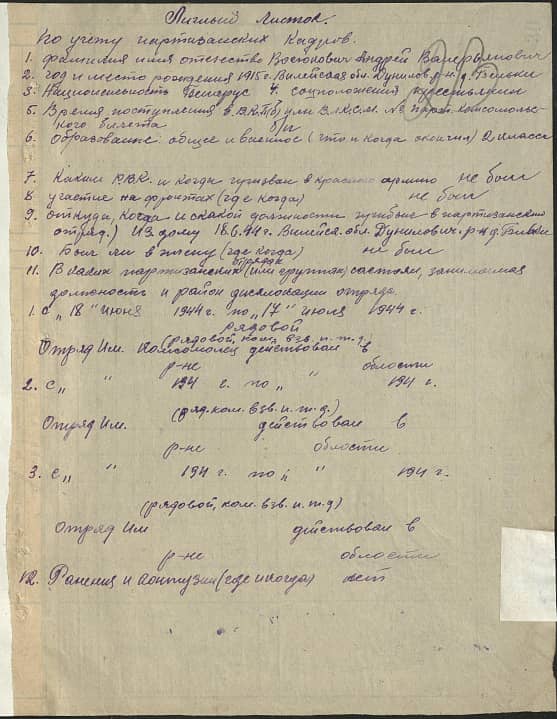 Личный Листок.
По учету партизанских Кадров.
1. Фамилия имя отчество Андрей Валерьянович
2. Год и место рождения 1915 г. Вилейская обл. Дунилов. р-н д.
3. Национальность Беларус 4. соцположения крестьянин
5. Время поступления в В.К.П(б) или В.Л.К.С.М. № парт. комсомольс-
кого билета б/п
6. Образование: общее и военное (что и когда окончил) 2 класса
7. Каким Р.В.К. и когда призван в красную армию не был
8. участие на фронтах (где когда) не был
9. откуда, когда и с какой должности прибыл в партизанский
отряд.) Из дому 18.6.44 г. Вилейск. обл. Дунилович. р-н д.
10. Был ли в плену (где когда) не был
отрядах
11. В каких партизанских (или группах) состоял, занимаемая
должность и район дислокации отряда.
1. с „18" июня 1944 г. по „17" июля 1944 г.
рядовой
(рядовой, ком. взв. и. т. д.)
Отряд Им. Комсомолец действовал в
р-не области
2. с „ " 194 г. по „ " 194 г.
(ряд. ком. взв. и. т. д.)
Отряд Им. действовал в
р-не области
3. с „ " 194 г. по „ " 194 г.
(рядовой, ком. взв. и. т. д)
Отряд Им действовал в
р-не области
12. Ранения и контузии (где и когда) нет